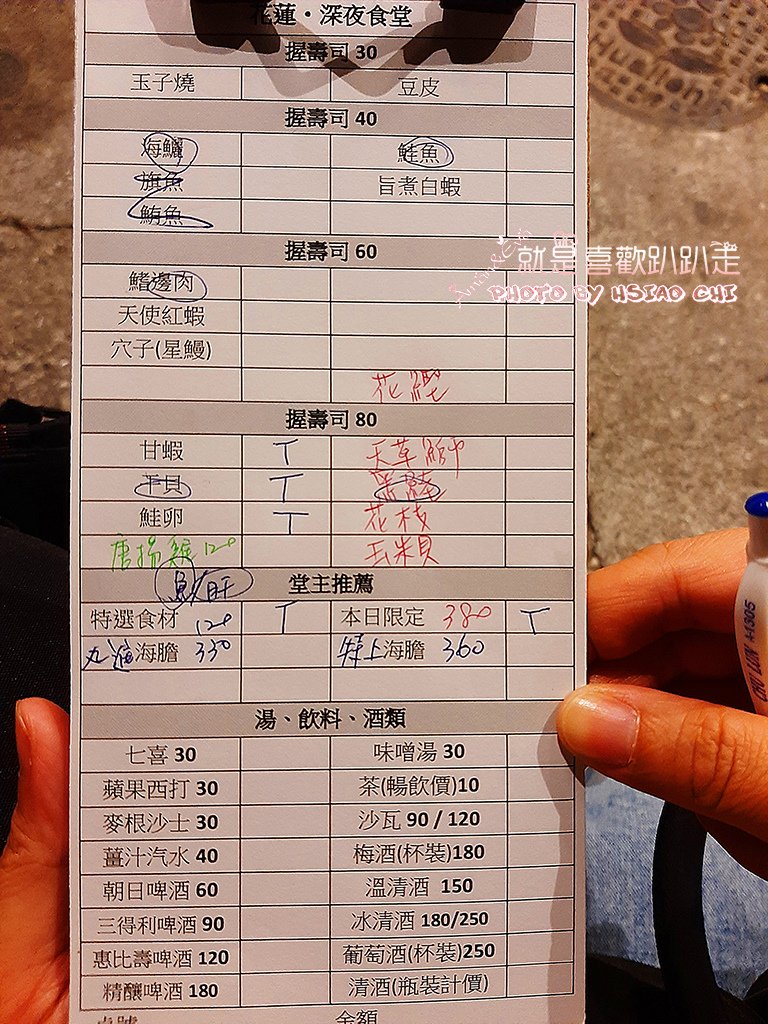 花蓮・深夜食堂
握壽司 30
玉子燒 豆皮
握壽司 40
海鱺 鮭魚
旗魚 旨煮白蝦
鮪魚
握壽司 60
就是喜歡趴趴走
PHOTO BY HSIAO CHI
鰭邊肉
天使紅蝦
穴子(星鰻)
花鰹
握壽司 80
甘蝦 T 天草鰤
干貝 T
鮭卵 T 花枝
唐揚雞 120 玉米貝
魚肝 堂主推薦
特選食材 120 T 本日限定 380 T
海膽 330 特上海膽 360
湯、飲料、酒類
七喜 30 味噌湯 30
蘋果西打 30 茶(暢飲價)10
麥根沙士 30 沙瓦 90 / 120
薑汁汽水 40 梅酒(杯裝)180
朝日啤酒 60 溫清酒 150
三得利啤酒 90 冰清酒 180/250
惠比壽啤酒 120 葡萄酒(杯裝)250
精釀啤酒 180 清酒(瓶裝計價)
桌號 金額